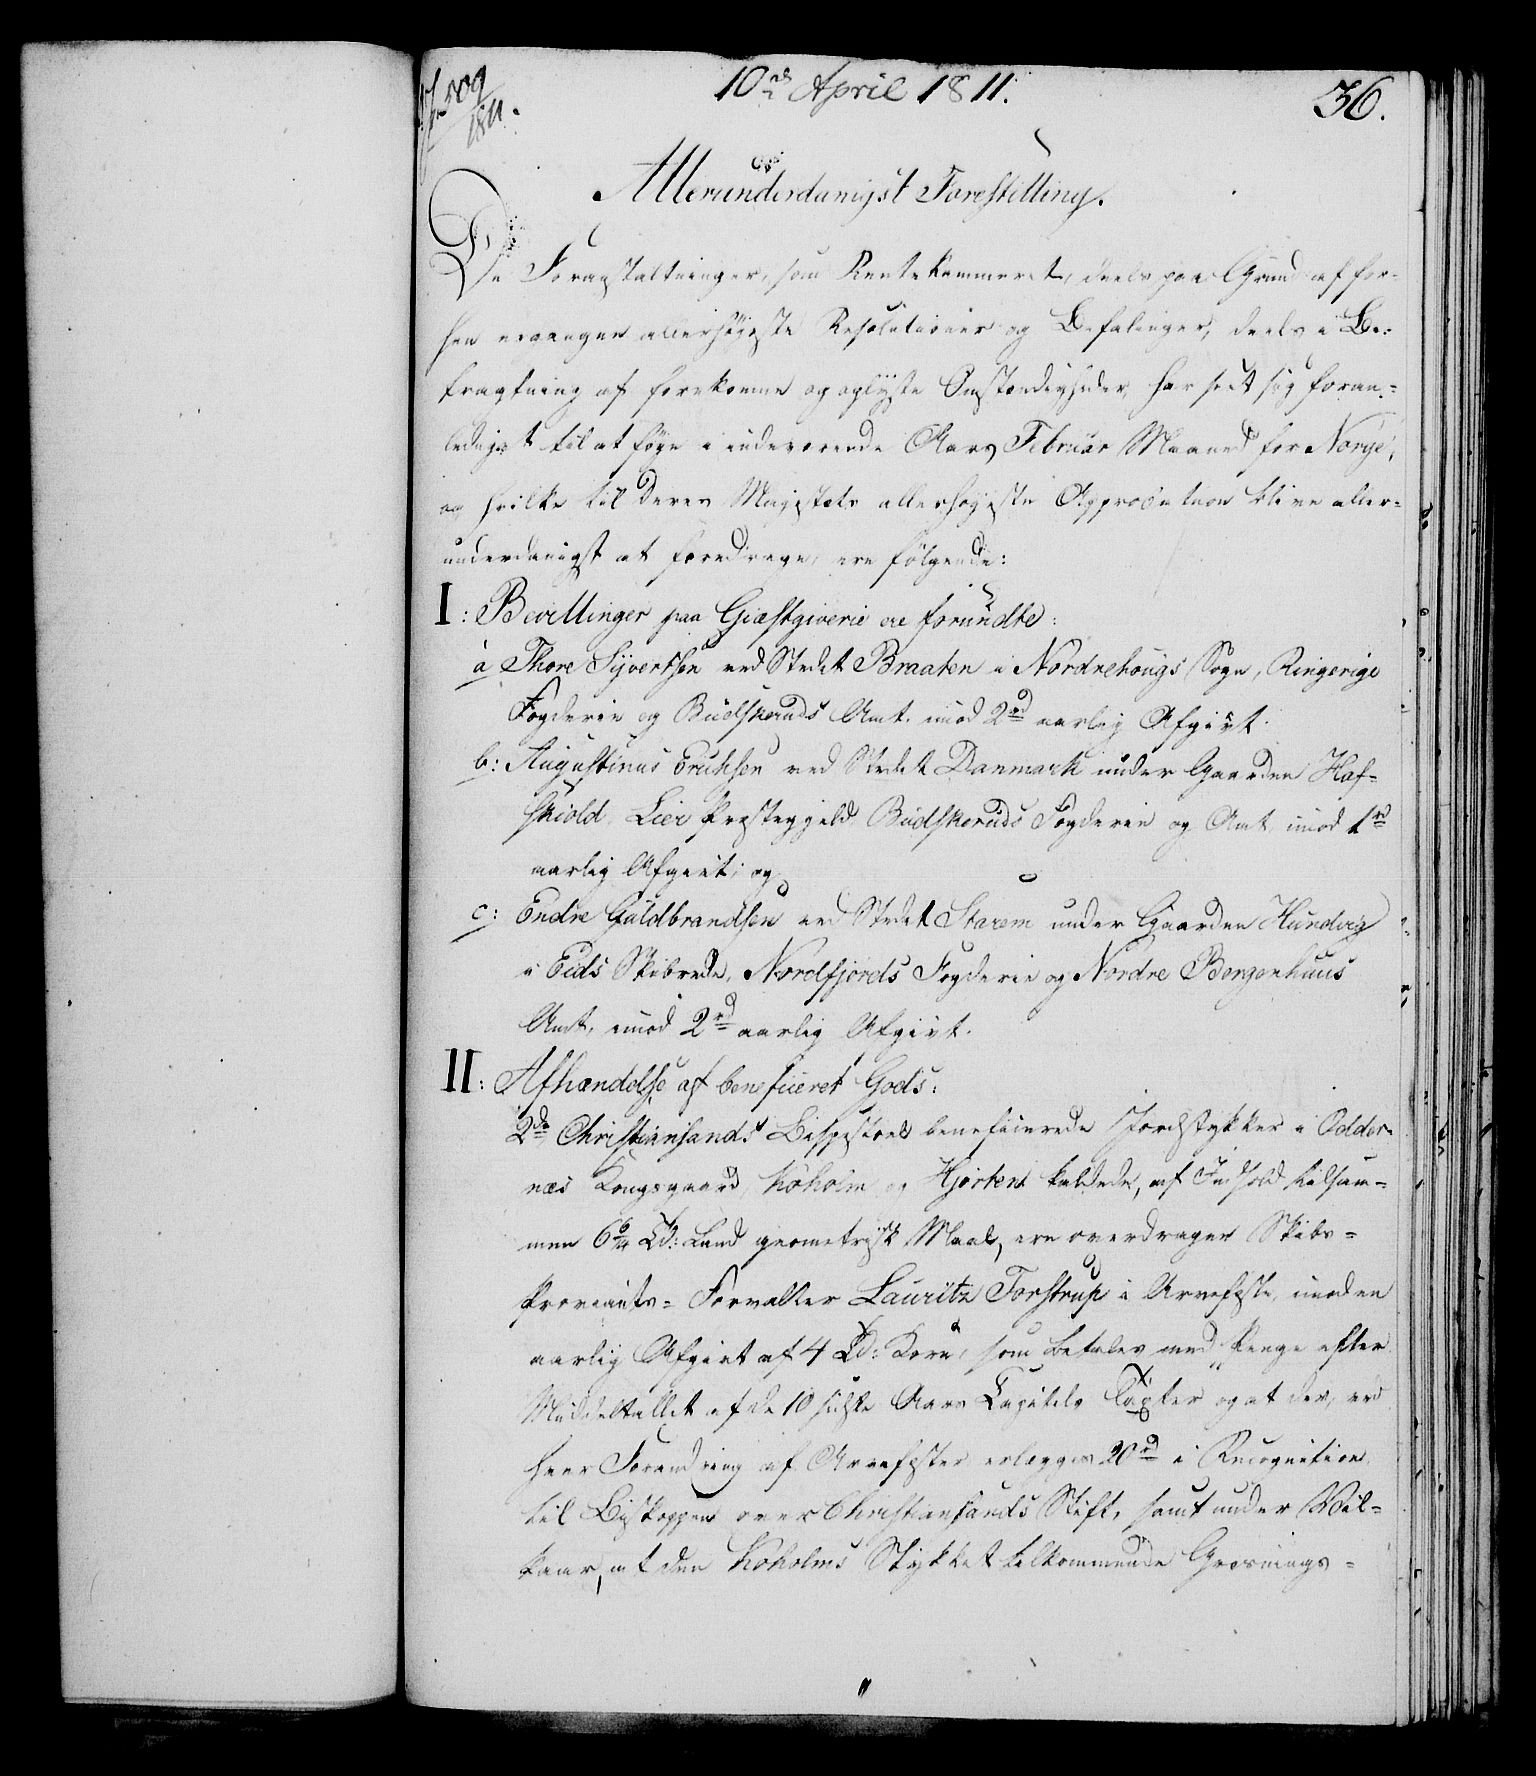 509
1811.
10de April 1811.
36.
Allerunderdanigst Forestilling.
De Foranstaltninger, som Rentekammeret, deels paa Grund af for-
hen ergangne allerhøjeste Resolutioner og Befalinger, deels i Be-
tragtning af forekomne og oplyste Omstændigheder, har seet sig foran-
lediget til at føye i indeværende Aars Februar Maaned for Norge,
og hvilke til Deres Majestæts allerhøjeste Approbation blive aller-
underdanigst at foredrage, ere følgende:
I: Bevillinger paa Giæstgiverie ere forundte:
a Thore Syvertsen ved Stedet Braaten i Nordrehougs Sogn, Ringerige
Fogderie og Budskeruds Amt. imod 2rd aarlig Afgivt.
b: Augustinus Erichsen ved Stedet Danmark under Gaarden Haf-
skiold, Lier Præstegjeld, Budskeruds Fogderie og Amt imod 1rd
aarlig Afgivt; og
c: Endre Guldbrandsen ved Stedet Starem under Gaarden Hundvig
i Eids Skibrede, Nordfjords Fogderie og Nordre Bergenhuus
Amt, imod 2rd aarlig Afgivt.
II: Afhændelse af beneficeret Gods:
2de Christiansands Bispestoel beneficerede Jordstykker i Odder-
næs Kongsgaard, Koholm og Hjorten kaldede, af Indhold tilsam-
men 6 Td: Land geometrisk Maal, ere overdragne Skibs-
Proviants- Forvalter Lauritz Torstrup i Arvefæste, imod en
aarlig Afgivt af 4 Td: Korn, som betales med Penge efter
Middeltallet af de 10 sidste Aars Capitels Taxter og at der, ved
hver Forandring af Arvefæster erlægges 20rd i Recognition
til Biskoppen over Christiansands Stift, samt under Vil-
kaar, at den Koholms Stykket tilkommende Græsnings-